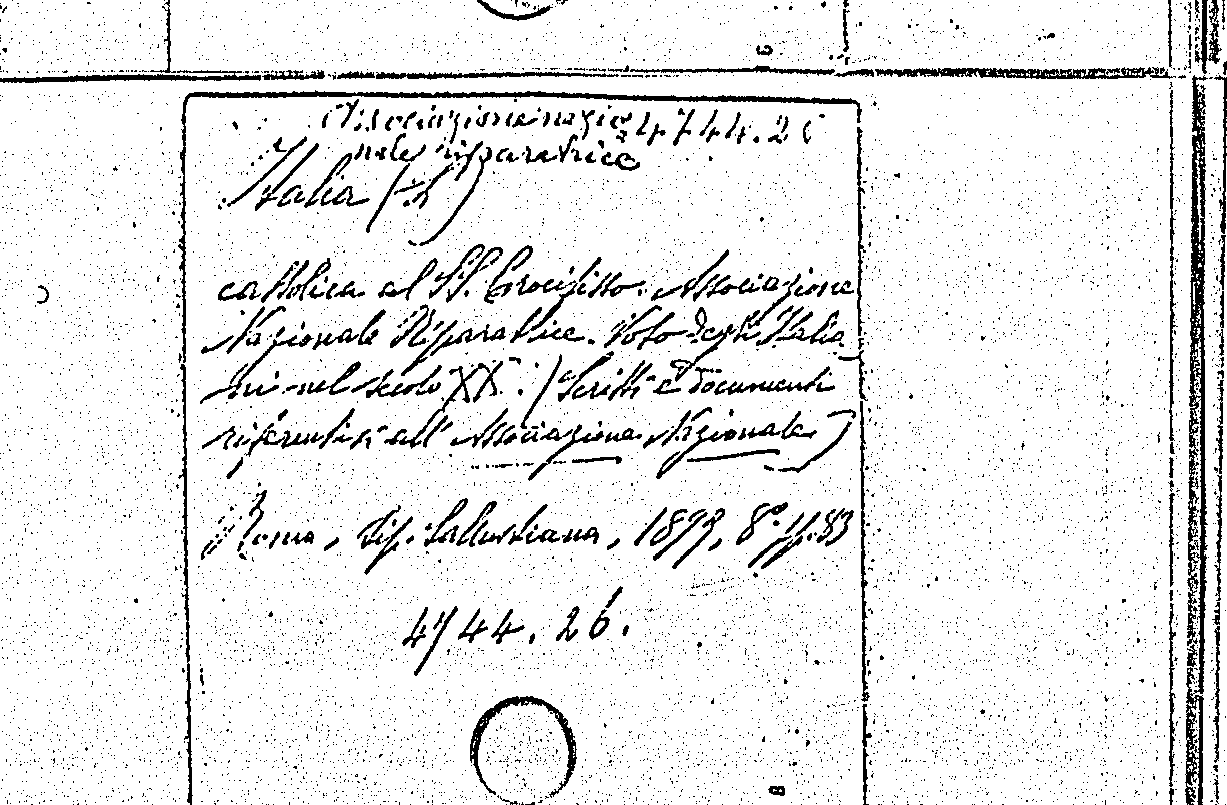 Associazione nazio 4744.26
nale riparatrice
Italia (L')
cattolica al SS. Crocifisso. Associazione
Nazionale Riparatrice. Voto degli Italia
ni nel secolo XX. (Scritti e documenti
riferentisi all' Associazione Nazionale)
Roma, tip. Sallustiana, 1899, 8° pp. 83
4744.26.